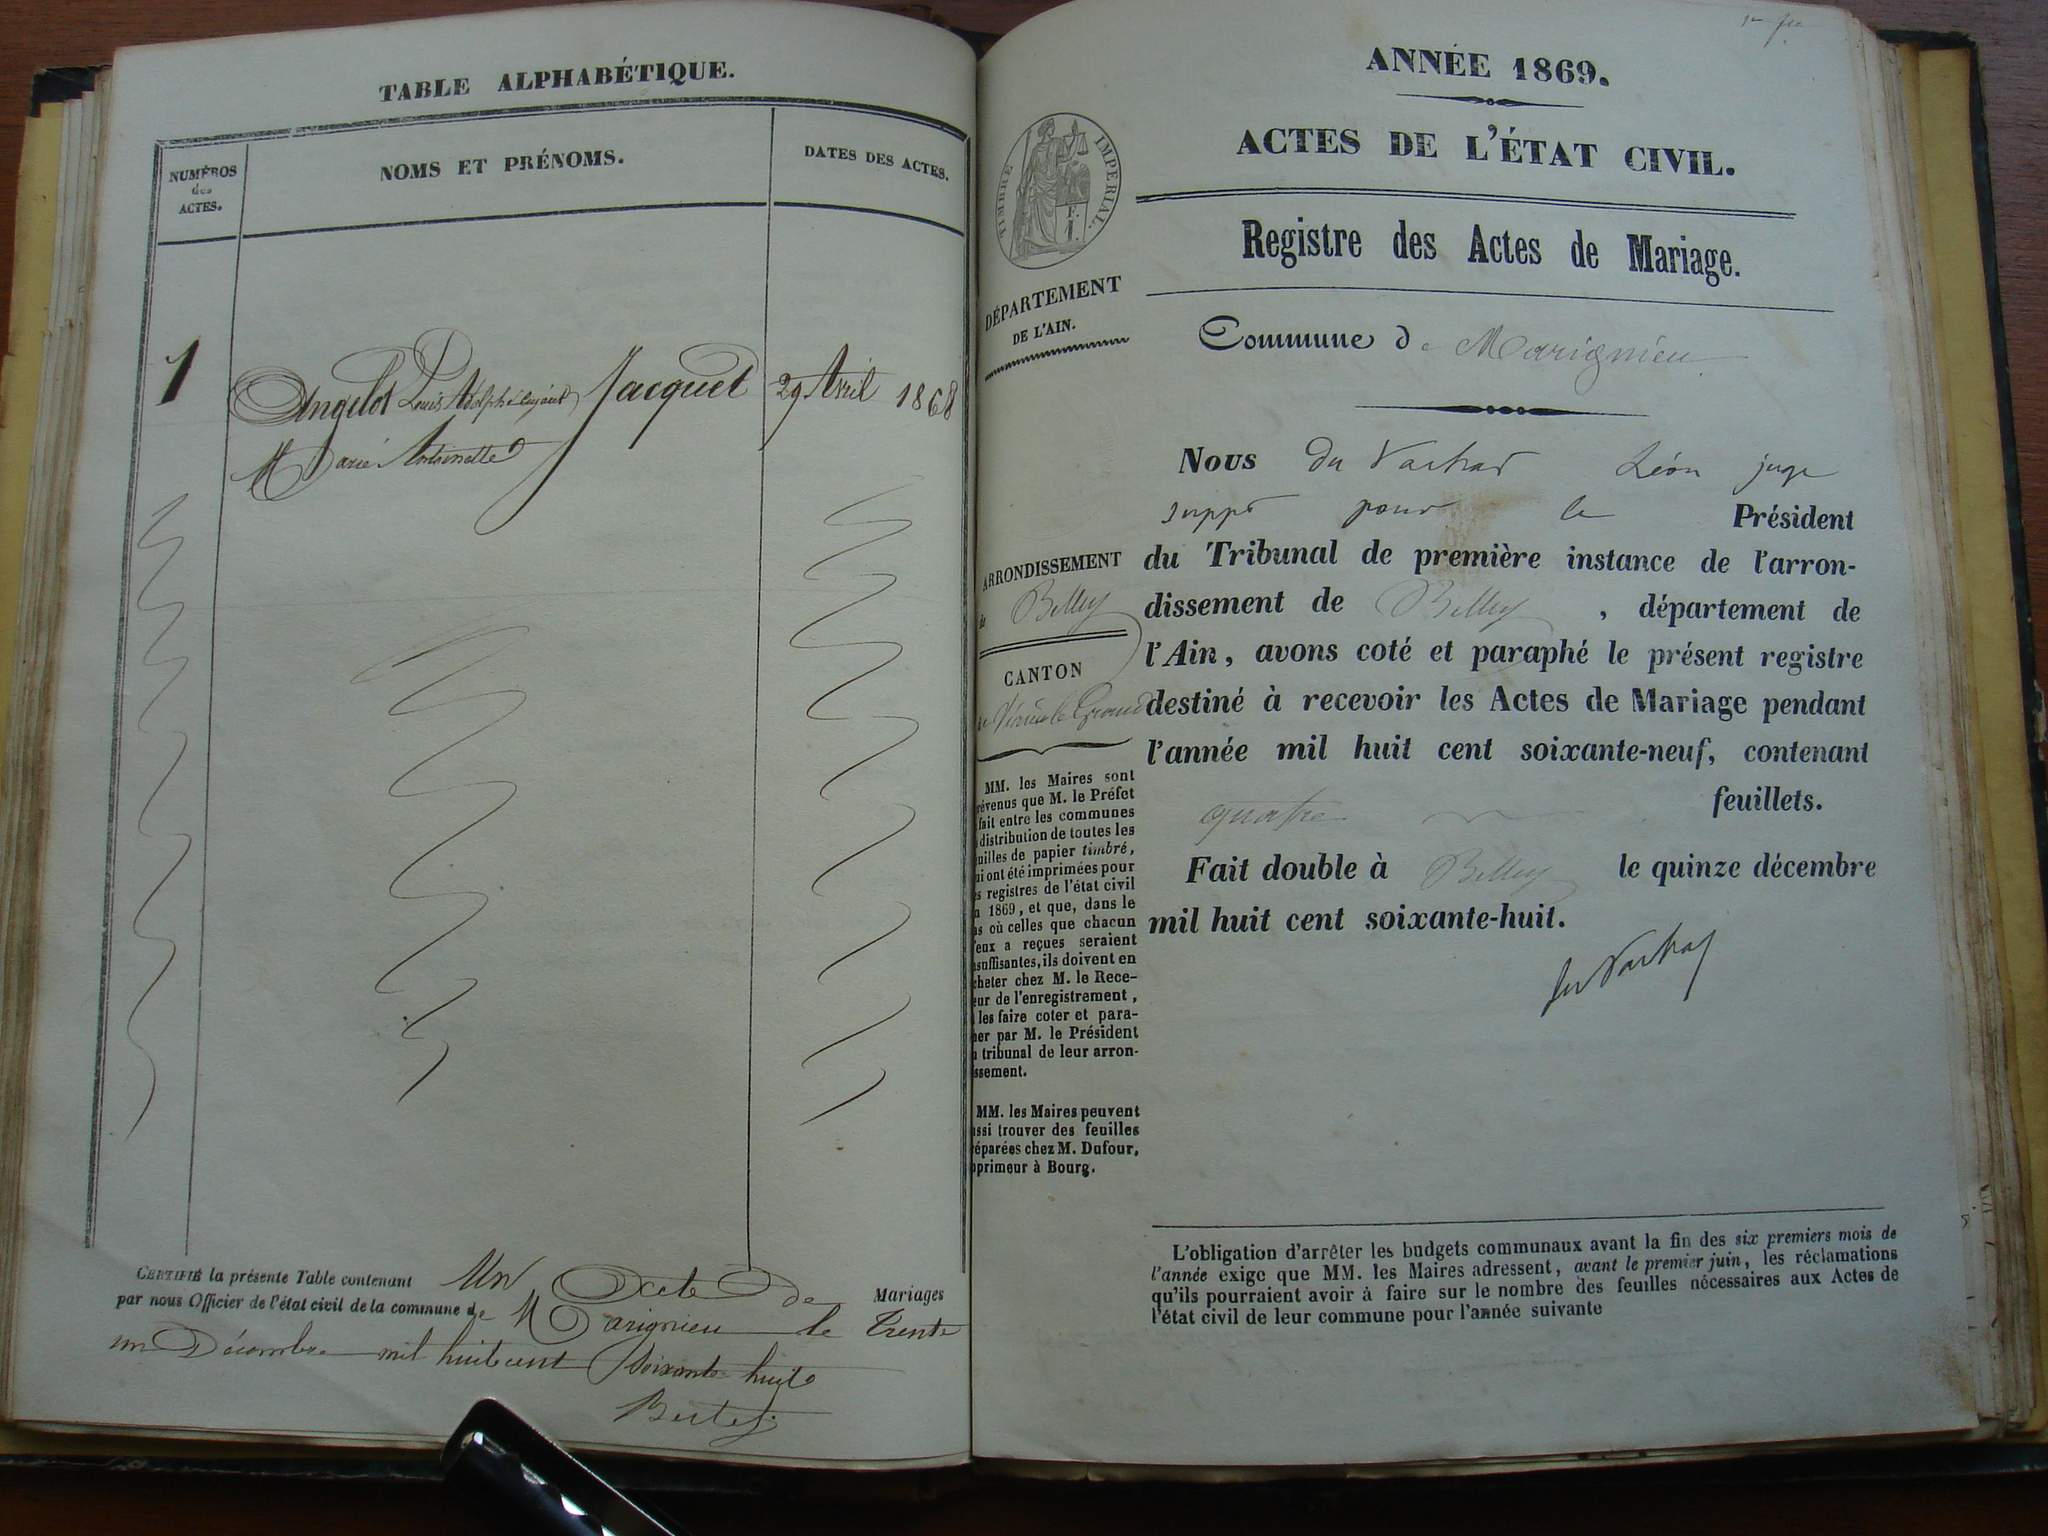 TABLE ALPHABÉTIQUE.
NUMÉROS
des
ACTES.
NOMS ET PRÉNOMS.
DATES DES ACTES.
1
Angelot Louis Adolphe Jacquet 29 Avril 1868
Marie Antoinette
CERTIFIÉ la présente Table contenant Un Acte De Mariages
par nous Officier de l'état civil de la commune de Marignieu le Trente
un Décembre mil huit cent Soixante huit
1er
ANNÉE 1869.
ACTES DE L'ÉTAT CIVIL.
TIMBRE IMPÉRIAL.
F.
1.
Registre des Actes de Mariage.
DÉPARTEMENT
DE L'AIN.
Commune de Marignieu
ARRONDISSEMENT
de Belley
CANTON
de Virieu le Grand
MM. les Maires sont
révenus que M. le Préfet
fait entre les communes
distribution de toutes les
uilles de papier timbré,
ui ont été imprimées pour
s registres de l'état civil
n 1869, et que, dans le
as où celles que chacun
'eux a reçues seraient
nsuffisantes, ils doivent en
cheter chez M. le Rece-
eur de l'enregistrement,
les faire coter et para-
her par M. le Président
u tribunal de leur arron-
ssement.
MM. les Maires peuvent
ussi trouver des feuilles
réparées chez M. Dufour,
mprimeur à Bourg.
Nous du Vachat Léon juge
suppt pour le Président
du Tribunal de première instance de l'arron-
dissement de Belley , département de
l'Ain, avons coté et paraphé le présent registre
destiné à recevoir les Actes de Mariage pendant
l'année mil huit cent soixante-neuf, contenant
quatre feuillets.
Fait double à Belley le quinze décembre
mil huit cent soixante-huit.
du Vachat
L'obligation d'arrêter les budgets communaux avant la fin des six premiers mois de
l'année exige que MM. les Maires adressent, avant le premier juin, les réclamations
qu'ils pourraient avoir à faire sur le nombre des feuilles nécessaires aux Actes de
l'état civil de leur commune pour l'année suivante